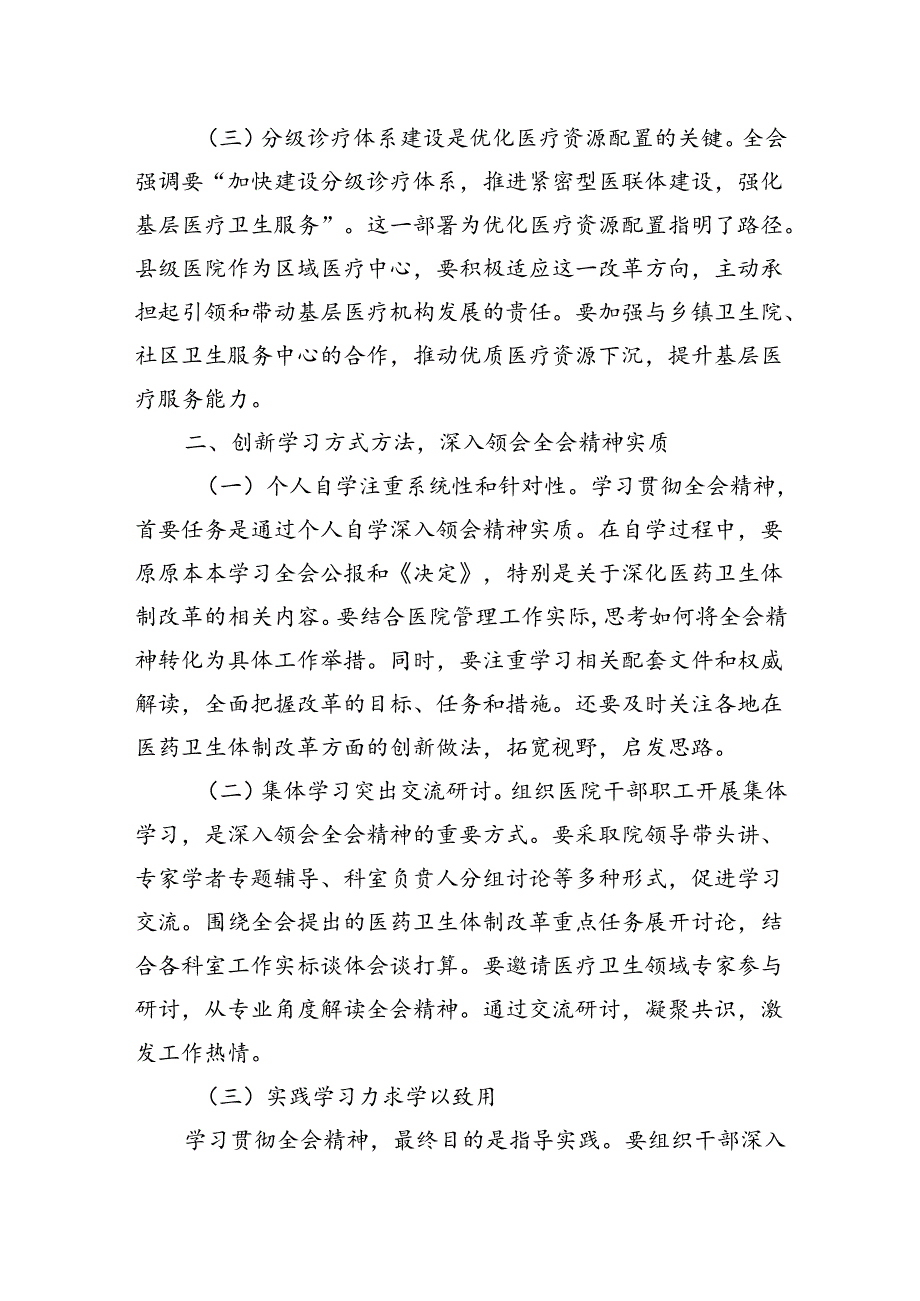 （三）分级诊疗体系建设是优化医疗资源配置的关键。全会
强调要“加快建设分级诊疗体系，推进紧密型医联体建设，强化
基层医疗卫生服务”。这一部署为优化医疗资源配置指明了路径。
县级医院作为区域医疗中心，要积极适应这一改革方向，主动承
担起引领和带动基层医疗机构发展的贵任。要加强与乡镇卫生院、
社区卫生服务中心的合作，推动优质医疗资源下沉，提升基层医
疗服务能力。
二、创新学习方式方法，深入领会全会精神实质
（一）个人自学注重系统性和针对性。学习贯彻全会精神，
首要任务是通过个人自学深入领会精神实质。在自学过程中，要
原原本本学习全会公报和《决定》，特别是关于深化医药卫生体
制改革的相关内容。要结合医院管理工作实际,思考如何将全会精
神转化为具体工作举措。同时，要注重学习相关配套文件和权威
解读，全面把握改革的目标、任务和措施。还要及时关注各地在
医药卫生体制改革方面的创新做法，拓宽视野，启发思路。
（二）集体学习突出交流研讨。组织医院干部职工开展集体
学习，是深入领会全会精神的重要方式。要采取院领导带头讲、
专家学者专题辅导、科室负贲人分组讨论等多种形式，促进学习
交流。围绕全会提出的医药卫生体制改革重点任务展开讨论，结
合各科室工作实标谈体会谈打算。要邀请医疗卫生领域专家参与
研讨，从专业角度解读全会精神。通过交流研讨，凝聚共识，激
发工作热情。
（三）实践学习力求学以致用
学习贯彻全会精神，最终目的是指导实践。要组织干部深入